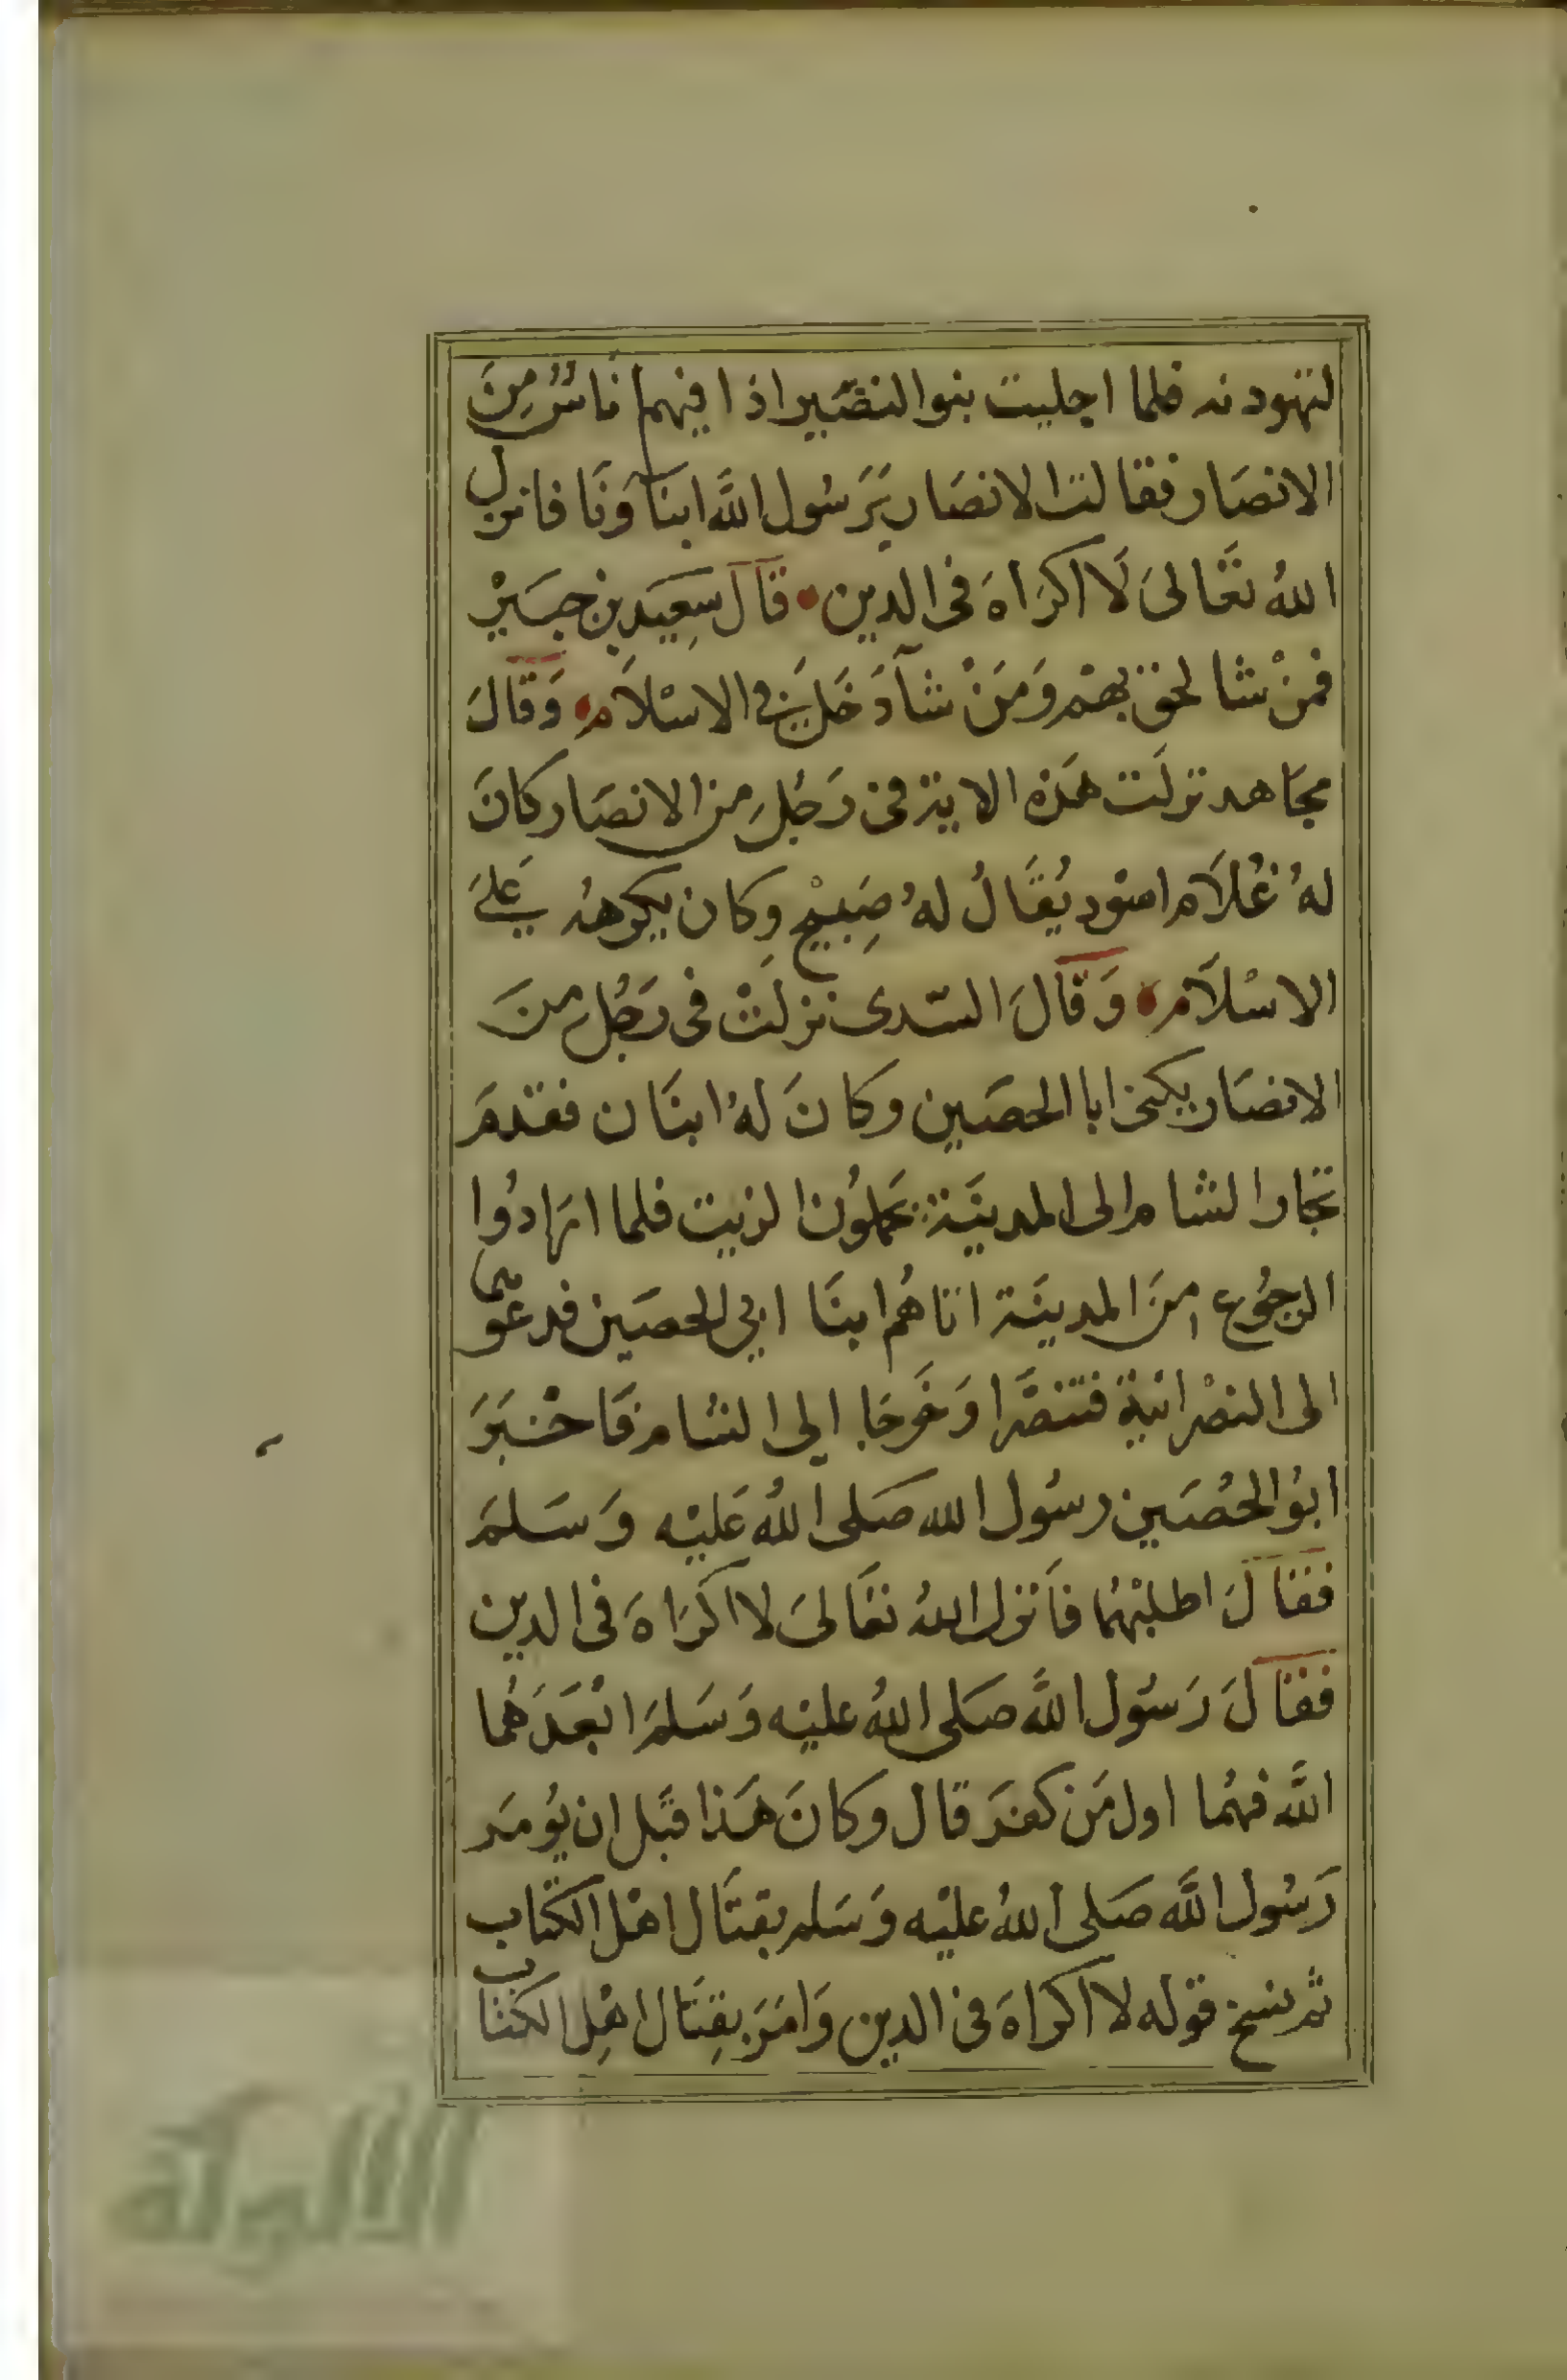 لتهودنه فلما اجليت بنوا النضير اذا فيهم ناسٌ مِنَ
الانصَار فقالت الانصَار يَرَسُول اللَّه ابنَآؤنَا فانزل
اللهُ تعَالىَ لَا اكرَاهَ فى الدين قَالَ سَعِيَد بن جبَيْر
فمنْ شا لحق بهمْ وَمَنْ شآدَخَلَ فى الاسْلَام وَقَالَ
مجَاهد نزلَت هَذه الاية فى رَجُلِ من الانصَار كانَ
لهُ غُلَام اسْود يُقَالُ لهُ صَبِيْح وكان يكرههُ عَلىَ
الاسْلَام وَقَالَ السّدى نزلَتْ فى رَجُلِ منَ
الانصَار يكنى ابا الحصَين وكانَ لهُ ابنَان فقدمَ
تجار الشام الى المدينَة يحَملوُن الزيت فلما ارَادُوا
الرجُوع منَ المدينَة اتاهُم ابنَا ابي الحصَين فدعوهما
الى النصْرانية فتنصَّرا وَخَرجَا الى الشام فَاخْبَرَ
ابوُ الحُصَين رسُول الله صَلى اللهُ عَليْه وَسَلمَ
فقَالَ اطلبْهُما فَانزل اللهُ تعَالىَ لا اكرَاهَ فى الدين
فقَالَ رَسوُل اللَّه صَلى اللهُ عليْه وَسَلمَ ابْعَدَهُما
اللَّه فهُما اول مَن كفرَ قال وكانَ هَذا قبَل ان يوُمَر
رَسُول اللَّه صَلى اللهُ عليْه وَسَلم بقتَال اهْل الكتاب
ثم نسخ قوله لا اكراهَ فى الدين وَامَرَ بقِتَال اهْلِ الكتاب
الألوكة